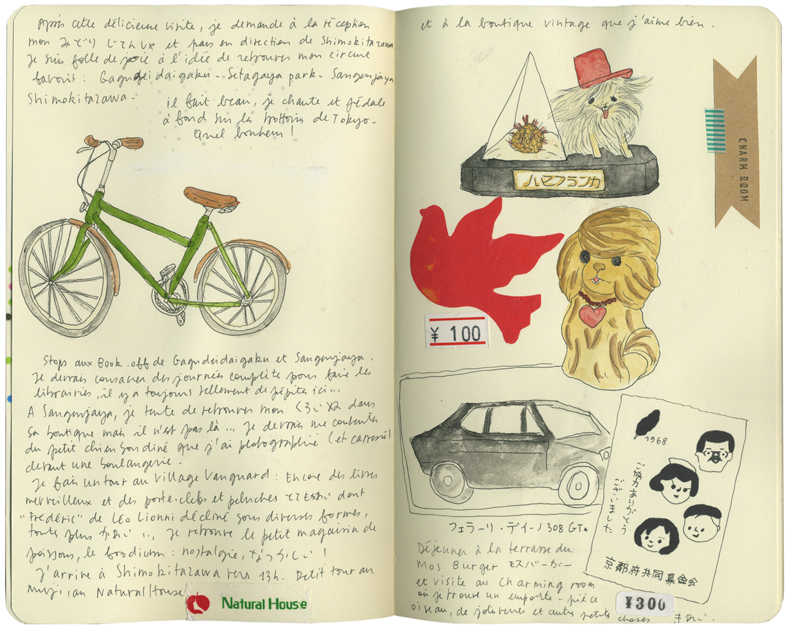 Après cette délicieuse visite, je demande à la réception
mon みどり じてんしゃ et pars en direction de Shimokitazawa
Je suis folle de joie à l'idée de retrouver mon circuit
favori : Gagudeidaigaku - Setagaya park - Sangenjaya
Shimokitazawa -
il fait beau, je chante et pédale
à fond sur les trottoirs de Tokyo -
Quel bonheur !
Stops aux Book-off de Gagudeidaigaku et Sangenjaya.
Je devrais consacrer des journées complète pour faire les
librairies, il y a toujours tellement de pépites ici...
A Sangenjaya, je tente de retrouver mon くろい 犬 dans
sa boutique mais il n'est pas là... Je devrais me contenter
du petit chien son diné que j'ai photographié (et caressé)
devant une boulangerie.
Je fais un tour au Village Vanguard : Encore des livres
merveilleux et des porte-clefs et peluches dont
"Frédéric" de Léo Lionni décliné sous diverses formes,
toute plus ... je retrouve le petit magasin de
poissons, le foodium : nostalgie, なつかしい !
J'arrive à Shimokitazawa vers 13h. Petit tour au
muji, au Natural House
Natural House
et à la boutique vintage que j'aime bien.
CHARM ROOM
ハマフランカ
¥100
1968
ご協力ありがとう
ございました
京都府共同募金会
フェラーリ・デイーノ308 GT4
Déjeuner à la terrasse du
Mos Burger モスバーガー
et visite au Charming room
où je trouve un emporte-pièce
oiseau, de jolis verres et autres petites choses
¥300